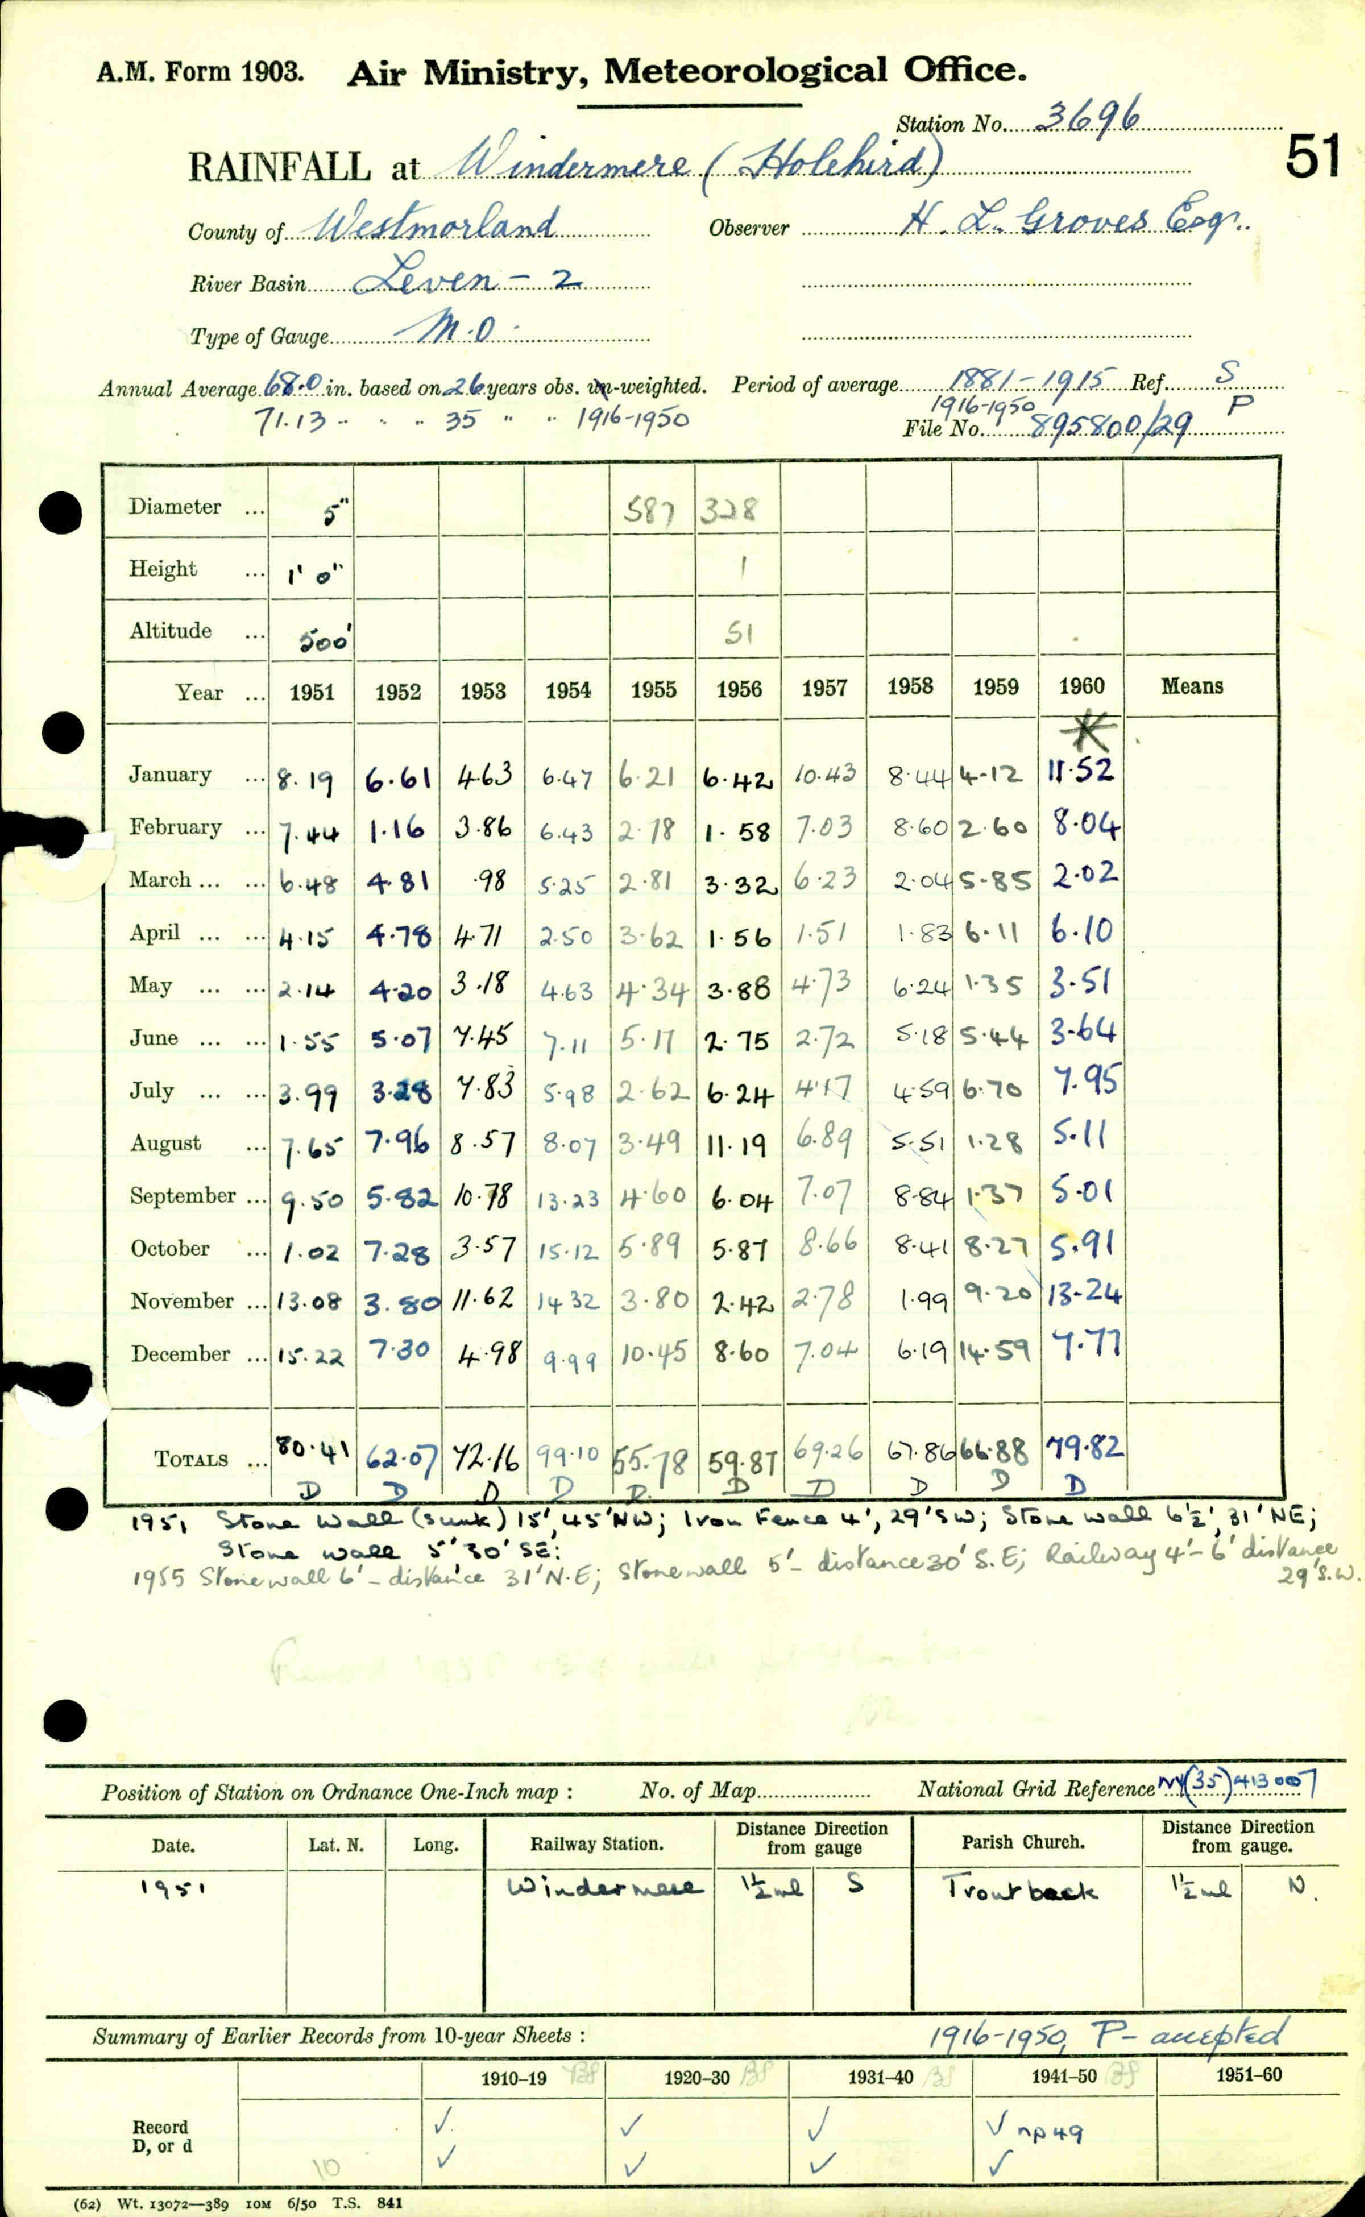 A.M. Form 1903. Air Ministry, Meteorological Office.
Station No. 3696
51
RAINFALL at Windermere (Holehird)
County of Westmorland Observer H. L. Groves Esqr.
River Basin Leven - 2
Type of Gauge M.O.
Annual Average 68.0 in. based on 26 years obs. un-weighted. Period of average 1881-1915 Ref. S
71.13 " " " 35 " " 1916-1950 1916-1950 P
File No. 895800/29
Diameter ... 5" 587 328
Height ... 1' 0" 1
Altitude ... 500' 51
Year ... 1951 1952 1953 1954 1955 1956 1957 1958 1959 1960 Means
January ... 8.19 6.61 4.63 6.47 6.21 6.42 10.43 8.44 4.12 11.52
February ... 7.44 1.16 3.86 6.43 2.78 1.58 7.03 8.60 2.60 8.04
March ... ... 6.48 4.81 .98 5.25 2.81 3.32 6.23 2.04 5.85 2.02
April ... ... 4.15 4.78 4.71 2.50 3.62 1.56 1.51 1.83 6.11 6.10
May ... ... 2.14 4.20 3.18 4.63 4.34 3.88 4.73 6.24 1.35 3.51
June ... ... 1.55 5.07 7.45 7.11 5.17 2.75 2.72 5.18 5.44 3.64
July ... ... 3.99 3.28 7.83 5.98 2.62 6.24 4.17 4.59 6.70 7.95
August ... 7.65 7.96 8.57 8.07 3.49 11.19 6.89 5.51 1.28 5.11
September ... 9.50 5.82 10.78 13.23 4.60 6.04 7.07 8.84 1.37 5.01
October ... 1.02 7.28 3.57 15.12 5.89 5.87 8.66 8.41 8.27 5.91
November ... 13.08 3.80 11.62 14 32 3.80 2.42 2.78 1.99 9.20 13.24
December ... 15.22 7.30 4.98 9.99 10.45 8.60 7.04 6.19 14.59 7.77
TOTALS ... 80.41 62.07 72.16 99.10 55.78 59.87 69.26 67.86 66.88 79.82
D D D D D D D D D D
1951 Stone Wall (sunk) 15', 45' NW; Iron Fence 4', 29' SW; Stone wall 6½', 31' NE;
Stone wall 5', 30' SE:
1955 Stone wall 6' - distance 31' N.E; Stone wall 5' - distance 30' S.E; Railway 4' - 6' distance
29' S.W.
Position of Station on Ordnance One-Inch map : No. of Map National Grid Reference NY(35) 413007
Date. Lat. N. Long. Railway Station. Distance Direction from gauge Parish Church. Distance Direction from gauge.
1951 Windermere 1½ ml S Troutbeck 1½ ml N.
Summary of Earlier Records from 10-year Sheets : 1916-1950, P - accepted
1910–19 1920–30 1931–40 1941–50 1951–60
Record
D, or d
✓ ✓ ✓ ✓ np49
10 ✓ ✓ ✓ ✓
(62) Wt. 13072—389 10M 6/50 T.S. 841